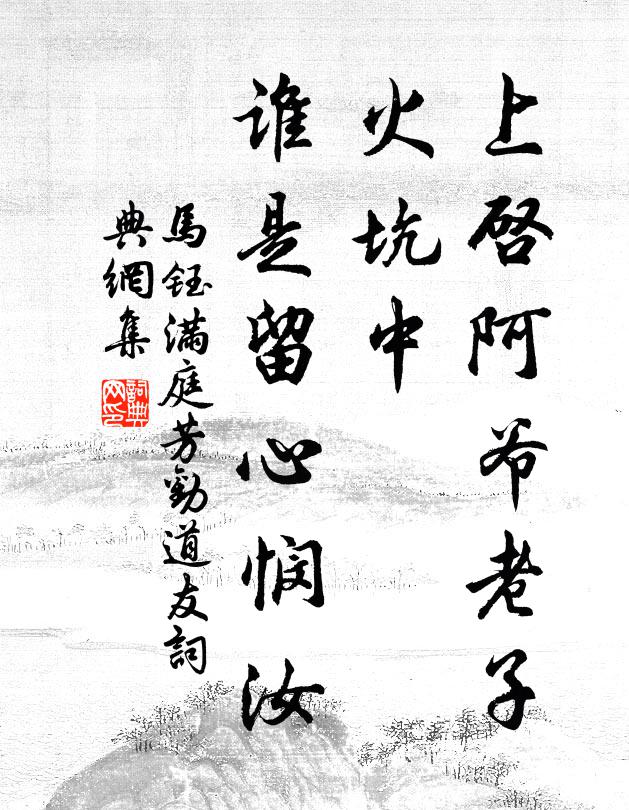 上啓阿爷老子
火坑中
谁是留心悯汝
馬鈺满庭芳勸道友詞
典網集
詞典网印